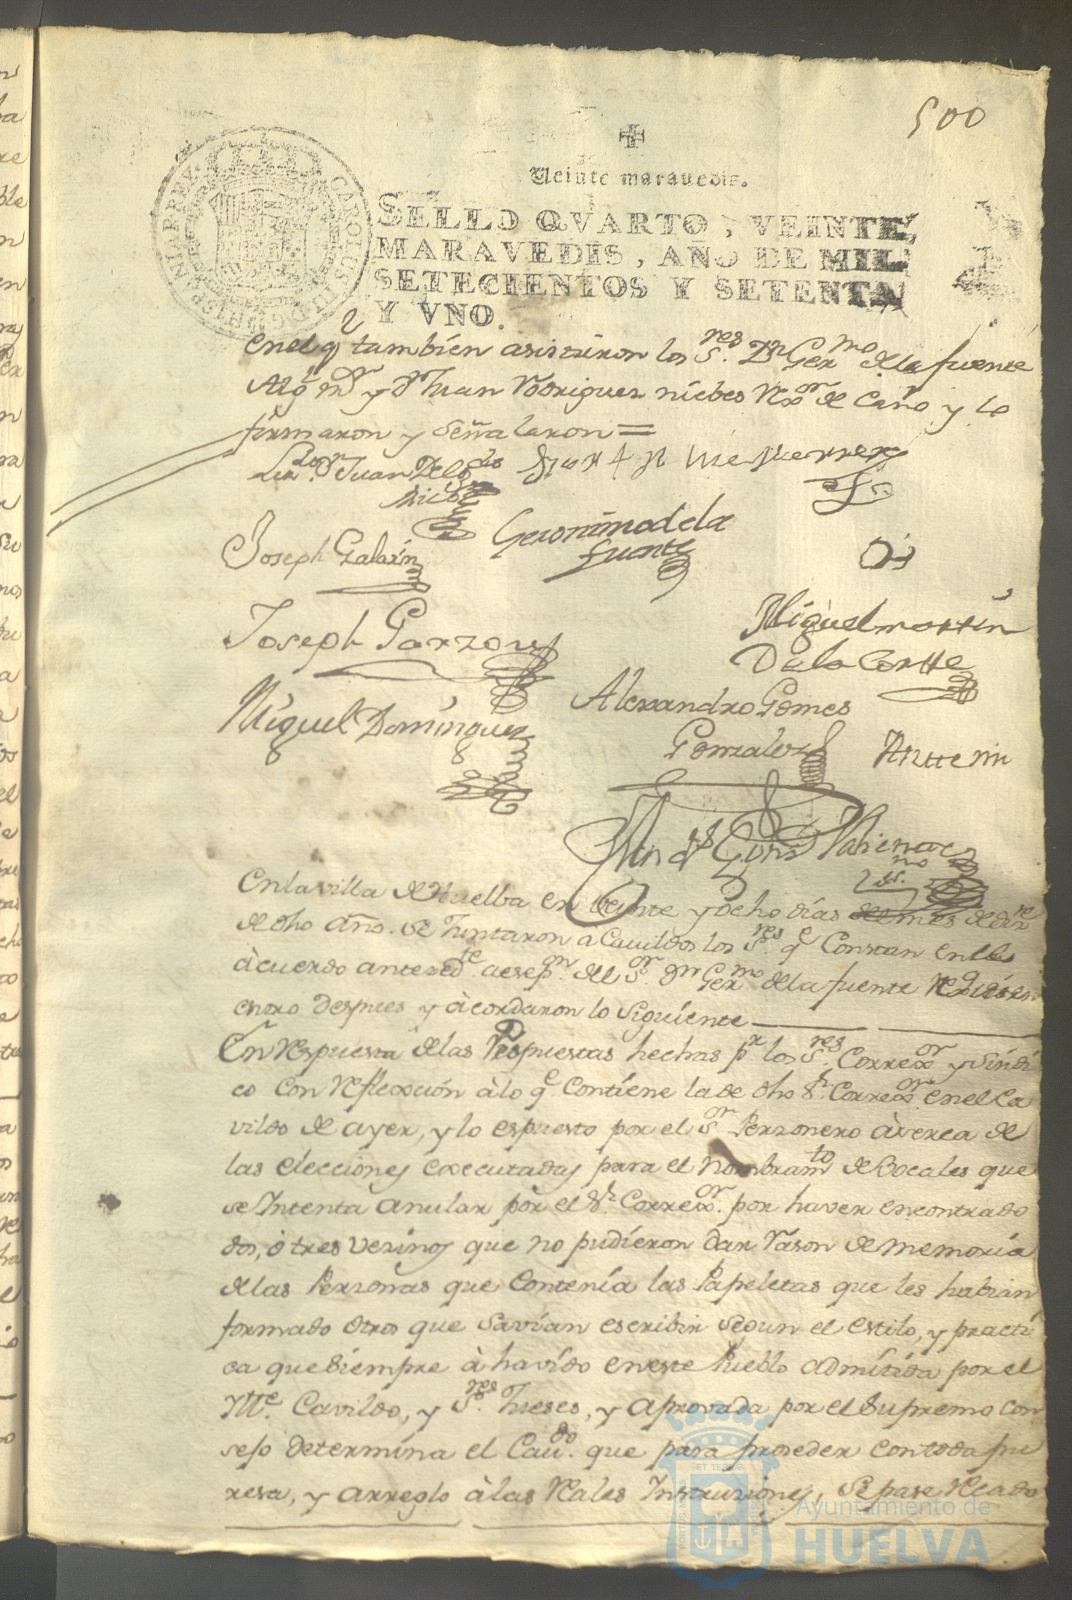 500
Veinte maravedis.
SELLO QVARTO, VEINTE
MARAVEDIS, AÑO DE MIL
SETECIENTOS Y SETENTA
Y VNO.
CAROLUS III D G HISPANIAR REX
en el q tambien asistieron los Sres. Dn Germo de la fuente
Algl mr y Dn Juan Rodriguez niebes Rxor de Caño y lo
firmaron y señalaron =
Lizdo Dn Juan Delgdo
Geronimo de la
fuente
Joseph Galasin
Joseph Garzon
Miguel martin
De la Cortte
Miguel Dominguez
Alexandro Gomes
Gonzalez
Antte mi
En la villa de Huelba en beinte y ocho dias de mes de dize
de dho año. se Juntaron a Cavildo los Sres q Constan en el
acuerdo antezedte aesepon del Sor Dn Germo de la fuente Rexor q uien
entro despues y àcordaron lo siguiente
En Respuesta de las Respuestas hechas pr los Sres. Correxor y Sindi
co con Reflexción àlo q contiene la de dho Sr. Correxor en el Ca
vildo de ayer, y lo espuesto por el Sor Perzonero àserca de
las elecciones executadas para el nombramto de Bocales que
se Intenta anular por el Sr. Correxor. por haver encontrado
dos, ò tres vezinos que no pudieron dar rason de memoria
de las Perzonas que contenia las Papeletas que les habian
formado otros que Savian escribir segun el estilo, y practi
ca que Siempre à havido en este Pueblo admitida por el
Yltte. Cavildo, y Sres. Jueses, y aprovada por el Supremo con
sejo determina el Cavdo. que para proseder con toda pu
resa, y arreglo à las Reales Instruziones, Se pase Recado
Ayuntamiento de
HUELVA